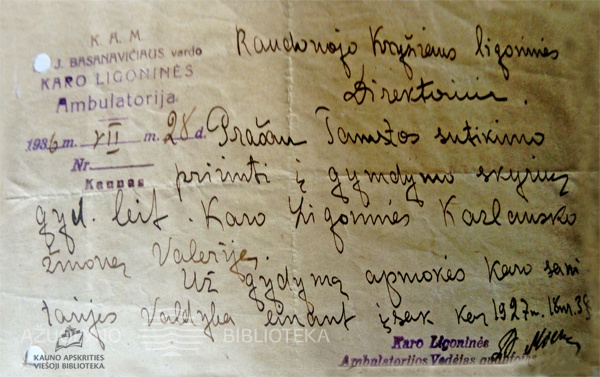 K. A. M
J. BASANAVIČIAUS vardo
KARO LIGONINĖS
Ambulatorija
1936 m. VII m. 28 d.
Nr
Kaunas
Raudonojo Kryžiaus ligoninės
Direktoriui.
Prašau Tamstos sutikimo
priimti į gymdymo skyrių
gyd. leit. Karo Ligoninės Kazlausko
žmoną Valeriją.
Už gydymą apmokės Karo sani
tarijos Valdyba einant įsak kar 1927 m.
Karo Ligoninės
Ambulatorijos Vedėjas
AŽUOLYNO BIBLIOTEKA
KAUNO APSKRITIES
VIEŠOJI BIBLIOTEKA